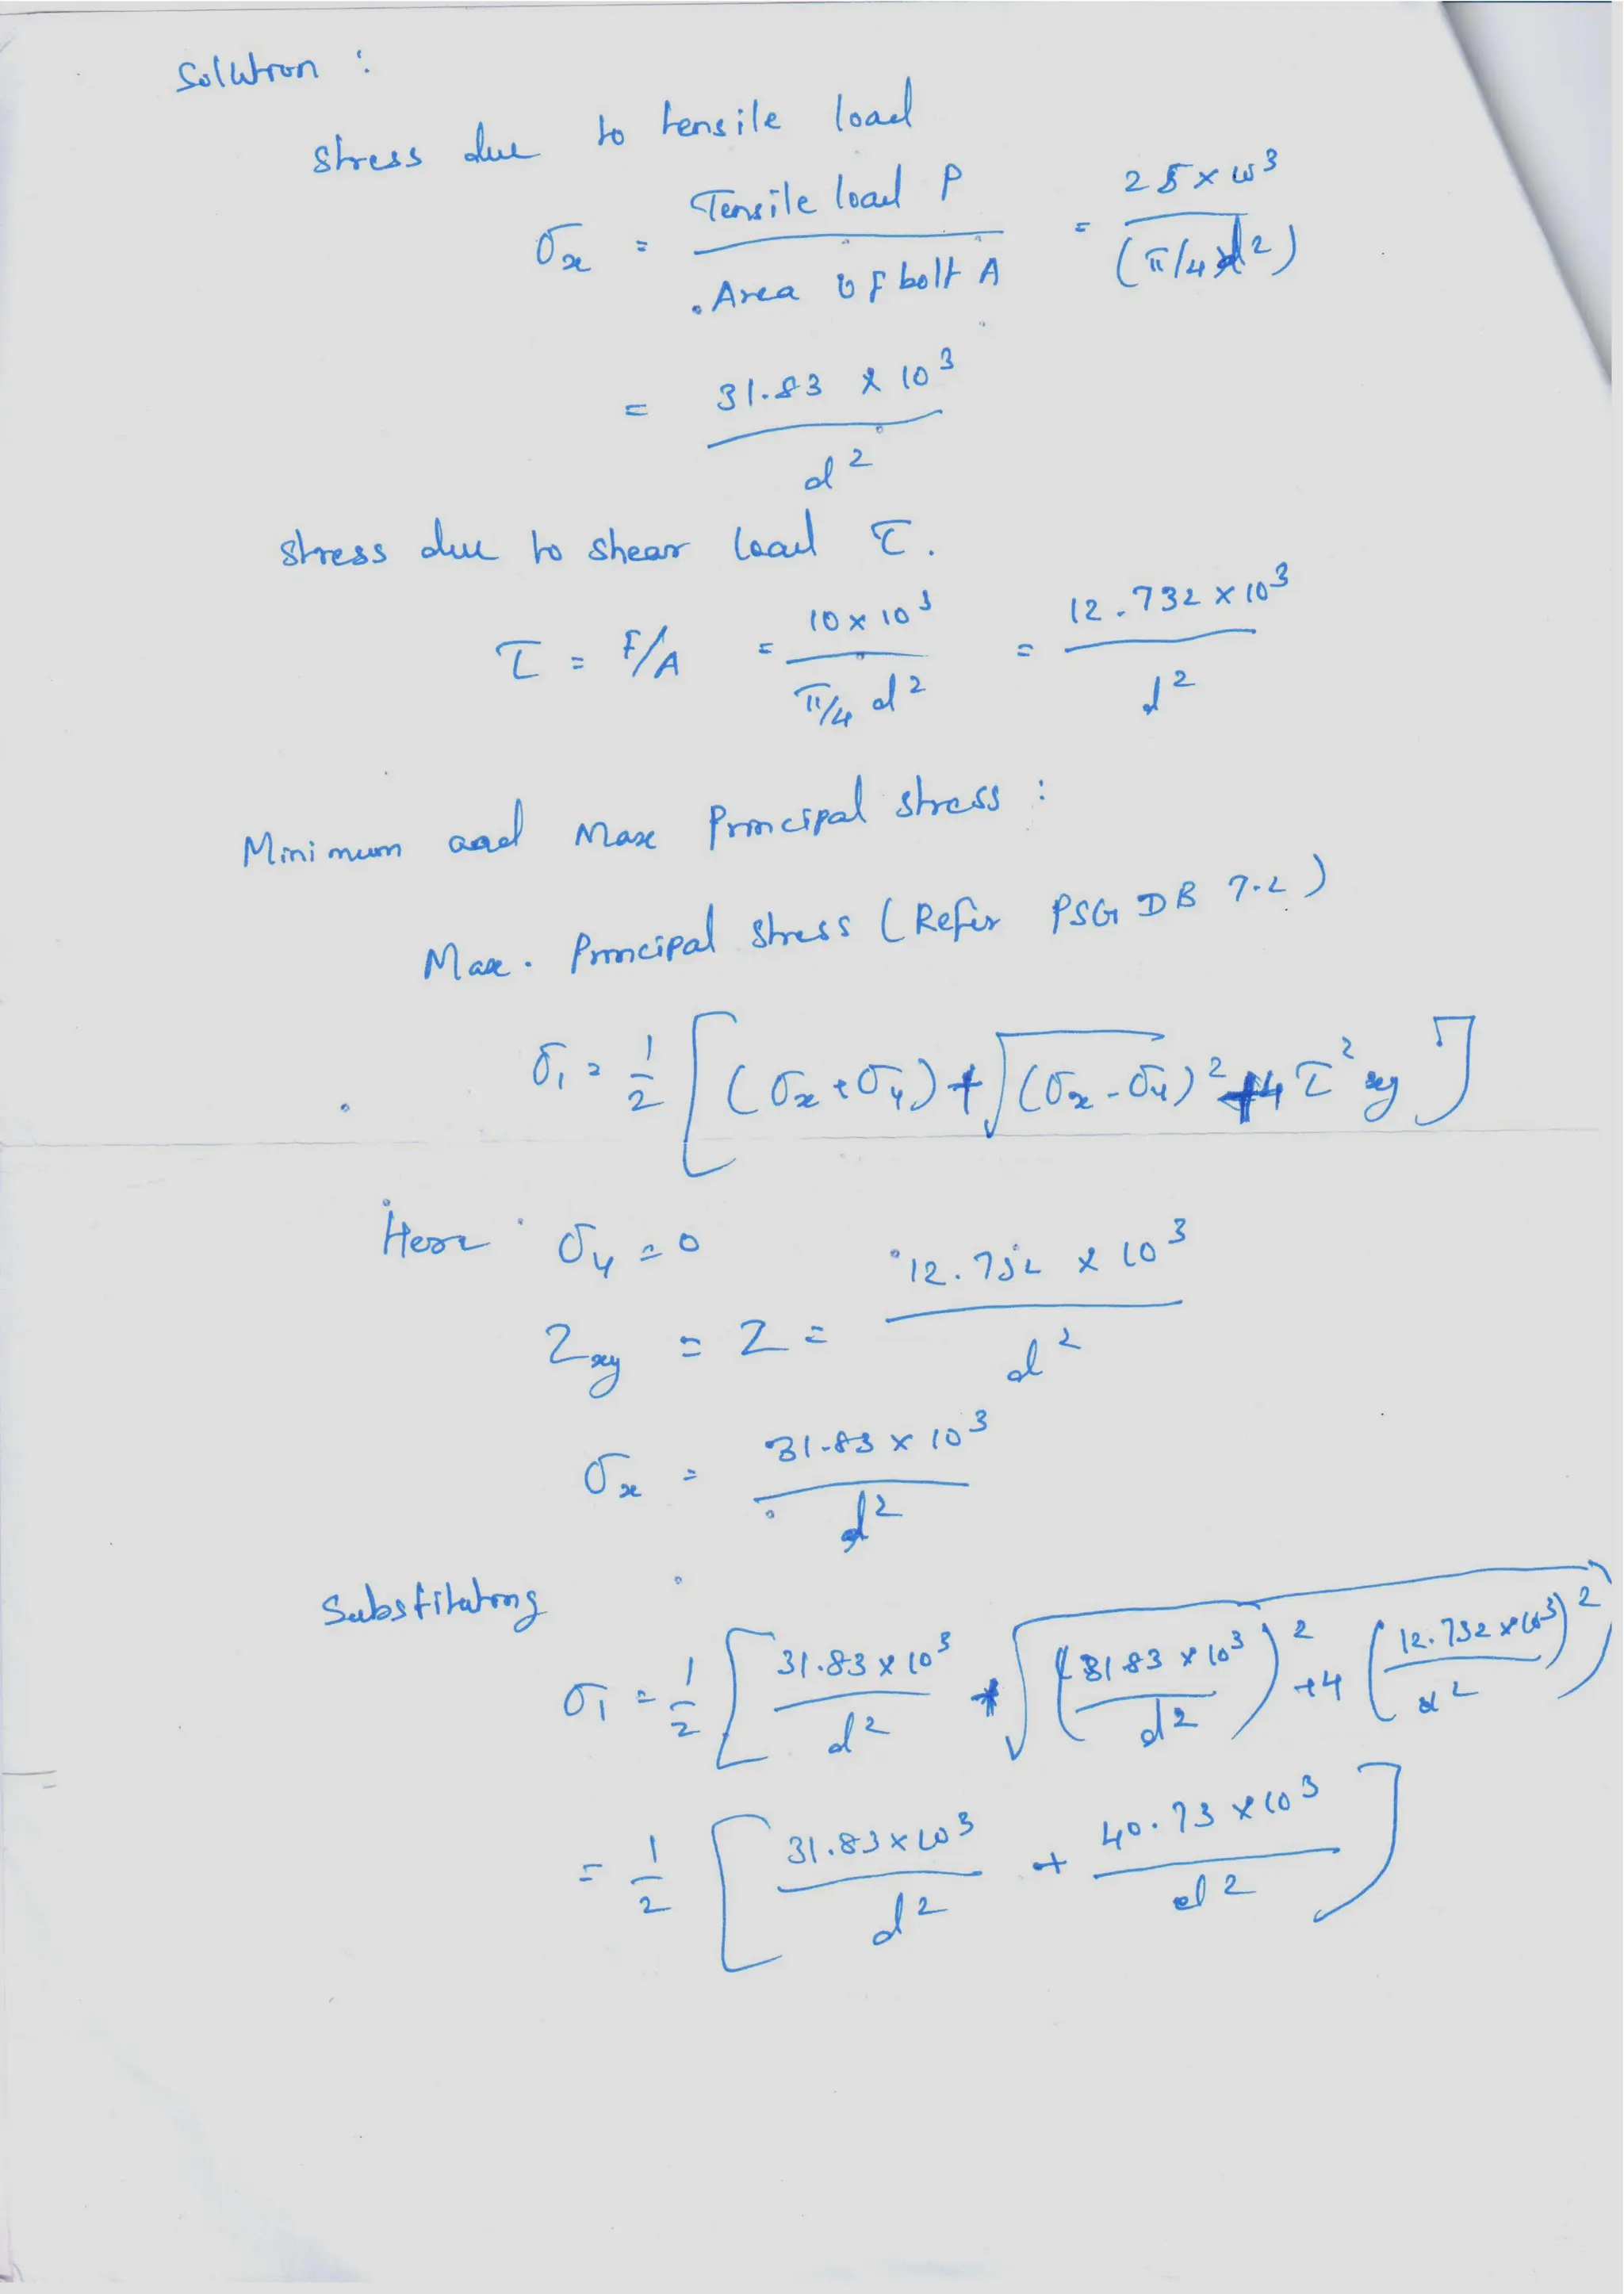 Solution :
Stress due to tensile load
σx = Tensile load P / Area of bolt A = 25 × 10³ / (π/4 d²)
= 31.83 × 10³ / d²
Stress due to shear load τ.
τ = F/A = 10 × 10³ / π/4 d² = 12.732 × 10³ / d²
Minimum and Max Principal stress :
Max. Principal stress ( Refer PSG DB 7.2 )
σ1 = 1/2 [ (σx + σy) + √(σx - σy)² + 4 τ²xy ]
Here σy = 0
τxy = τ = 12.732 × 10³ / d²
σx = 31.83 × 10³ / d²
Substituting
σ1 = 1/2 [ 31.83 × 10³ / d² + √( 31.83 × 10³ / d² )² + 4 ( 12.732 × 10³ / d² )² ]
= 1/2 [ 31.83 × 10³ / d² + 40.73 × 10³ / d² ]